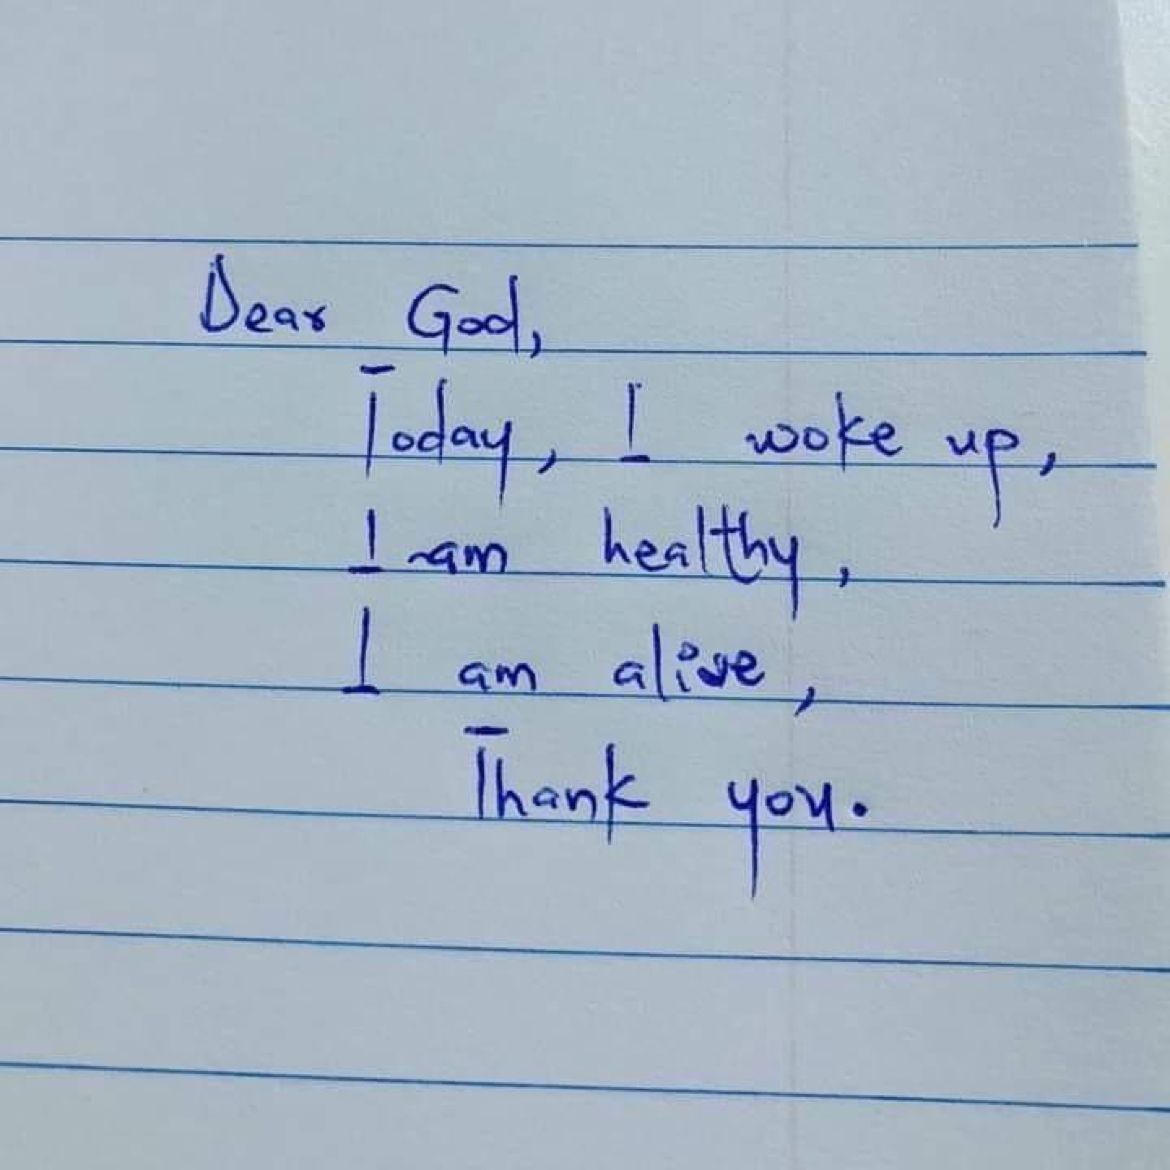 Dear God,
Today, I woke up,
I am healthy,
I am alive,
Thank you.